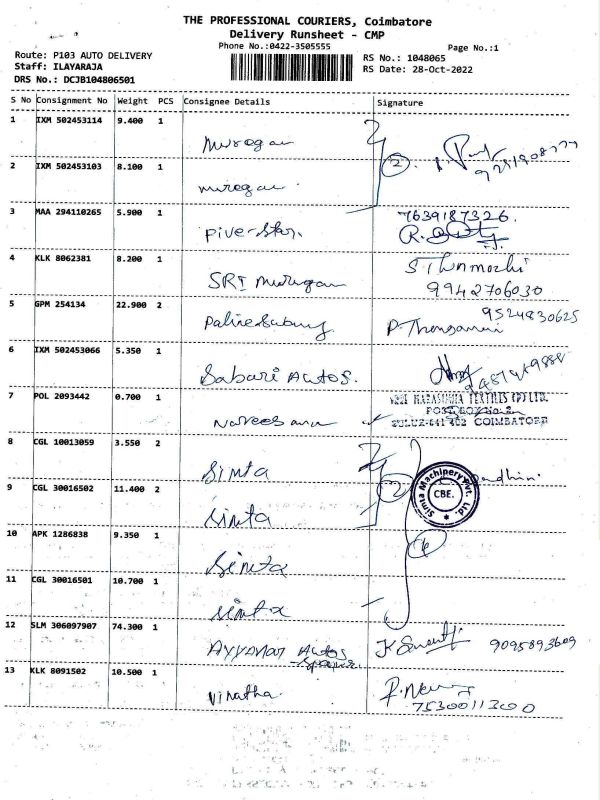 THE PROFESSIONAL COURIERS, Coimbatore
Delivery Runsheet - CMP
Phone No.:0422-3505555
Page No.:1
Route: P103 AUTO DELIVERY
Staff: ILAYARAJA
DRS No.: DCJB104806501
RS No.: 1048065
RS Date: 28-Oct-2022
S No Consignment No Weight PCS Consignee Details Signature
1 IXM 502453114 9.400 1
murogan
2
2 IXM 502453103 8.100 1
murogan
3 MAA 294110265 5.900 1
Five-Star.
7639187326.
4 KLK 8062381 8.200 1
SRI murugan
S Thnmozhi
9942706030
5 GPM 254134 22.900 2
9524830625
6 IXM 502453066 5.350 1
Sabari Autos.
7 POL 2093442 0.700 1
TEXTILES (P) LTD.
POST BOX No.
SULUR-641 402 COIMBATORE
8 CGL 10013059 3.550 2
Simta
9 CGL 30016502 11.400 2
Simta
2
Simta Machinery Pvt. Ltd.
CBE.
10 APK 1286838 9.350 1
Simta
11 CGL 30016501 10.700 1
Simta
12 SLM 306097907 74.300 1
Ayyanar Autos
9095893609
13 KLK 8091502 10.500 1
Vinatha
7530011300